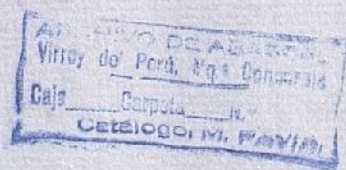 ARCHIVO DE ABASCAL
Virrey del Perú, Mq.s Concordia
Caja Carpeta N.º
Catálogo, M. PAVIA.